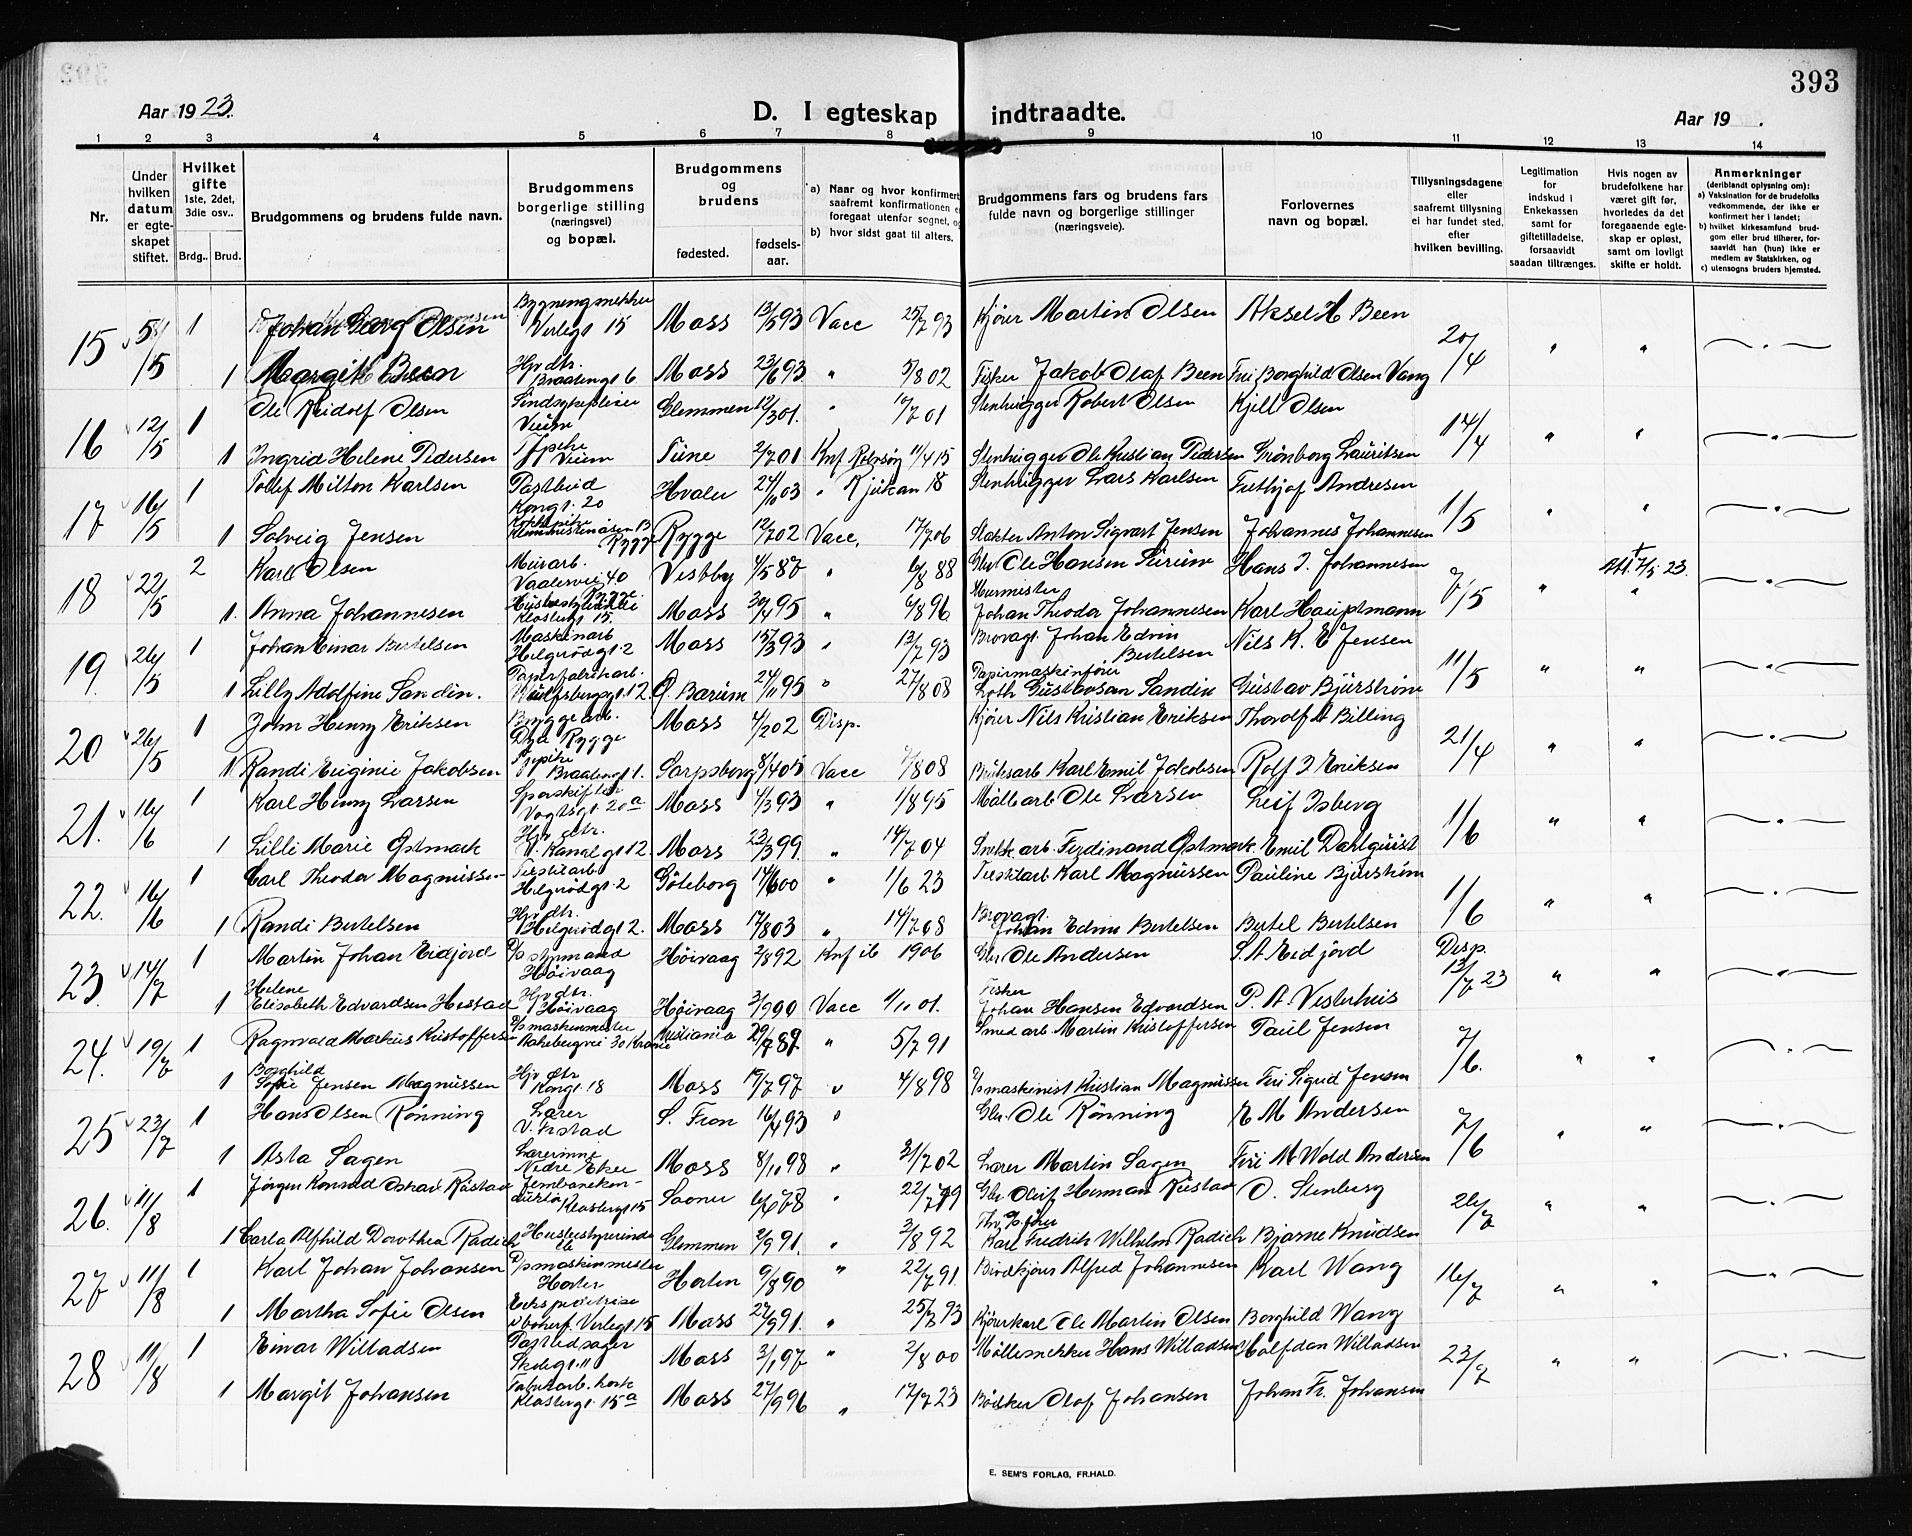 393
Aar 1923.
D. I egteskap indtraadte.
Aar 19 .
1 2 3 4 5 6 7 8 9 10 11 12 13 14
Nr.
Under hvilken datum er egteskapet stiftet.
Hvilket gifte 1ste, 2det, 3die osv..
Brdg.. Brud.
Brudgommens og brudens fulde navn.
Brudgommens borgerlige stilling (næringsvei) og bopæl.
Brudgommens og brudens
fødested. fødselsaar.
a) Naar og hvor konfirmert
saafremt konfirmationen
foregaat utenfor sognet,
b) hvor sidst gaat til alters.
Brudgommens fars og brudens fars fulde navn og borgerlige stillinger (næringsveie).
Forlovernes navn og bopæl.
Tillysningsdagene eller saafremt tillysning ei har fundet sted, efter hvilken bevilling.
Legitimation for indskud i Enkekassen samt for giftetilladelse, forsaavidt saadan tiltrænges.
Hvis nogen av brudefolkene har været gift før, hvorledes da det foregaaende egteskap er opløst, samt om lovligt skifte er holdt.
Anmerkninger (deriblandt oplysning om):
a) Vaksination for de brudefolks vedkommende, der ikke er konfirmert her i landet;
b) hvilket kirkesamfund brudgom eller brud tilhører, forsaavidt han (hun) ikke er medlem av Statskirken, og
c) utensogns bruders hjemsted.
15 5/5 1 Johan Olsen Verlegt 15 Moss 13/5 93 Vacc 25/7 93 Kjører Martin Olsen Aksel H Been 20/4
1 Margit Been Hjv dtr. Braatengt 6 Moss 23/6 93 " 5/8 02 Fisker Jakob Olaf Been Fru Borghild Olsen Vang
16 12/5 1 Ole Reidolf Olsen Glemmen 12/3 01. " 10/7 01 Stenhugger Robert Olsen Kjell Olsen 14/4
1 Ingrid Helene Pedersen Tune 2/7 01 Knf 11/4 15 Stenhugger Ole Kristian Pedersen Grönborg Lauritsen
17 16/5 1 Milton Karlsen Postbud Kongt. 20 Hvaler 24/10 03 " Rjukan 18 Stenhugger Lars Karlsen Frithjof Andresen 1/5
1 Solveig Jensen Rygge Rygge 12/7 02 Vacc. 17/7 06 Slakter Anton Sigvart Jensen Johannes Johannesen
18 22/5 2 Karl Olsen Murarb. Vaalervei 40 Rygge Vestby 4/5 87 " 6/8 88 Gbr Ole Hansen Hans J. Johannesen 7/5
1. Anna Johannesen Klostergt 15. Moss 30/4 95 " 6/8 96 Murmester Johan Theodor Johannesen Karl Hauptmann
19. 26/5 1 Johan Einar Bertelsen Maskinarb Helgerödgt. 2 Moss 15/3 93 " 13/7 93 Brovagt. Johan Edvin Bertelsen Nils K. E Jensen 11/5
1 Lilly Adolfine Sandin. Papirfabrikarb. Wulfsbergsgt. 12. Ö. Bærum 24/11 95 " 27/8 08 Papirmaskinfører Loth Gustavson Sandin Gustav Bjurström
20 26/5 1 John Henry Eriksen Bryggearb. Rygge Moss 4/2 02 Disp. Kjører Nils Kristian Eriksen Thorolf A Billing 21/4
1 Randi Euginie Jakobsen Frk Braatengt 1. Sarpsborg 8/4 05 Vacc 2/8 08 Bruksarb Karl Emil Jakobsen Rolf J Eriksen
21. 16/6 1 Karl Henry Larsen Sporskifter Vogtsgt. 20a Moss 4/3 93 " 1/8 95 Möllearb Ole Larsen Leif Isberg 1/6
1 Lilli Marie Østmack Hjv dtr. V. Kanalgt 12. Moss 23/3 99. " 14/7 04 Snekk. arb. Ferdinand Østmack Emil Dahlquist
22. 16/6 1 Carl Theodor Magnussen Helgerödgt. 2 Göteborg 14/6 00 " 1/6 23 Karl Magnussen Pauline Bjurström 1/6
1 Randi Bertelsen Hjv dtr. Helgerödgt 2. Moss 17/8 03 " 14/7 08 Brovagt. Johan Edvin Bertelsen Bertel Bertelsen
23. 14/7 1 Martin Johan Eidjord D/s styrmand Höivaag Höivaag 2/8 92 Knf ib 1906 Gbr Ole Andersen S. A. Eidjord Desp. 13/7 23
1 Helene Elisabeth Edvardsen Hestad Hjv dtr. Höivaag Höivaag 3/9 00 Vacc 1/11 01. Fisker Johan Hansen Edvardsen P. A. Vesterhus
24. 19/7 1 Ragnvald Markus Kristoffersen D/s maskinmester Akebergvei 30 Kr.ania Kristiania 29/7 87 " 5/7 91 Smed arb Martin Kristoffersen Paul Jensen 7/6.
1 Borghild Sofie Jensen Magnussen Hjv dtr Kongt. 18 Moss 19/7 97 " 4/8 98 D/s maskinist Kristian Magnussen Fru Sigrid Jensen
25 23/7 1 Hans Olsen Rönning Lærer S. Fron 16/4 93 " Gbr. Ole Rönning E M Andersen 7/6
1 Asta Sagen Lærerinne Nedre Eker Moss 8/11 98 " 31/7 02 Lærer Martin Sagen Fru M Wold Andersen
26. 11/8 1 Jörgen Konrad Oskar Rustad Jernbanekonduktør Klostergt 15 Soner 22/7 Gbr Herman Rustad O. Stenberg 26/7
1 Carla Alfhild Dorothea Radich Husbestyrerinde Glemmen 2/9 91. " 3/8 92 Karl Fredrik Wilhelm Radich Bjarne Knudsen
27 11/8 1 Karl Johan Johansen D/s maskinmester Horten Horten 9/8 90 " 22/7 91. Alfred Johannesen Karl Wang 16/7
1 Martha Sofie Olsen Verlegt 15 Moss 27/9 91. " 25/7 93 Kjörerkarl Ole Martin Olsen Borghild Wang
28 11/8 1 Einar Willadsen Skolegt. 11 Moss 3/1 97 " 2/8 00 Möllesnekker Hans Willadsen Halfdan Willadsen 23/7
1 Margit Johansen Fabrikarb. Klostergt. 15a Moss 27/9 96 " 17/7 23 Bödker Olaf Johansen Johan Fr. Johansen
E. SEM'S FORLAG, FR.HALD.